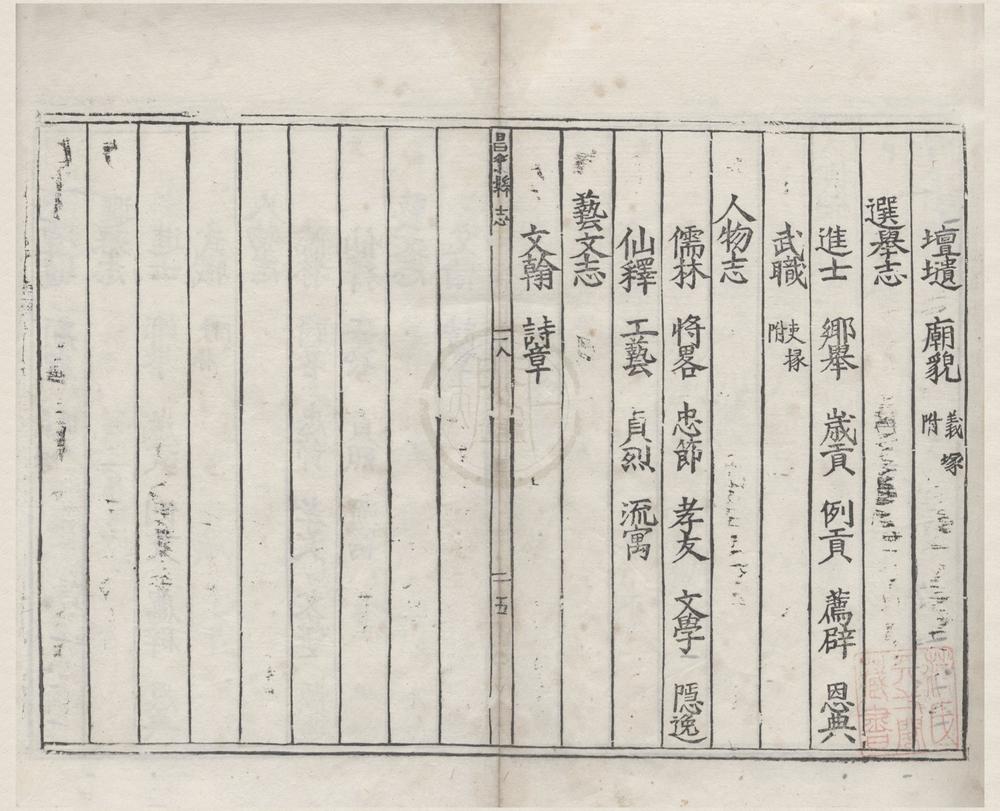 壇壝 廟貌 義塚附
選舉志
進士 鄉舉 歲貢 例貢 薦辟 恩典
武職 吏掾附
人物志
儒林 將畧 忠節 孝友 文學 隱逸
仙釋 工藝 貞烈 流寓
藝文志
文翰 詩章
昌樂縣志 一八 二五